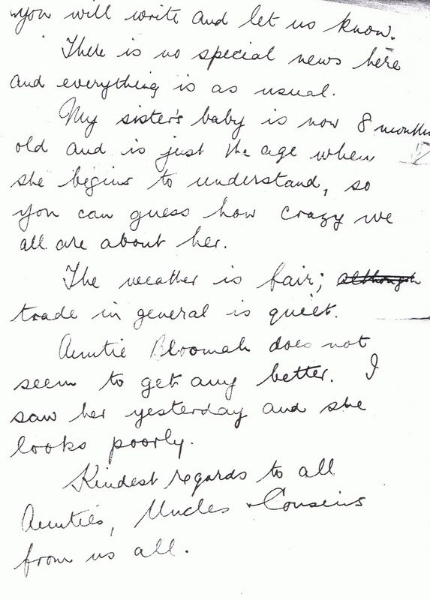 you will write and let us know.
There is no special news here
and everything is as usual.
My sister's baby is now 8 months
old and is just the age when
she begins to understand, so
you can guess how crazy we
all are about her.
The weather is fair; although
trade in general is quiet.
Auntie Bloomah does not
seem to get any better. I
saw her yesterday and she
looks poorly.
Kindest regards to all
Aunties, Uncles & Cousins
from us all.